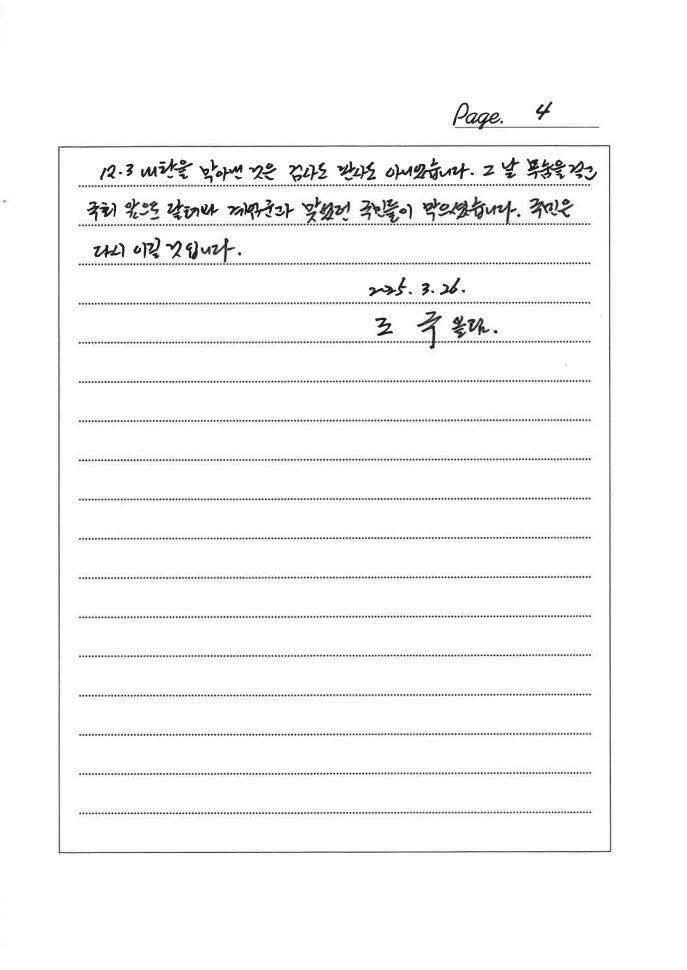 Page. 4
12.3 내란을 막아낸 것은 검사도 판사도 아니었습니다. 그 날 목숨을 걸고
국회 앞으로 달려와 계엄군과 맞섰던 국민들이 막으셨습니다. 국민은
다시 이길 것입니다.
2025. 3. 26.
조 국 올림.